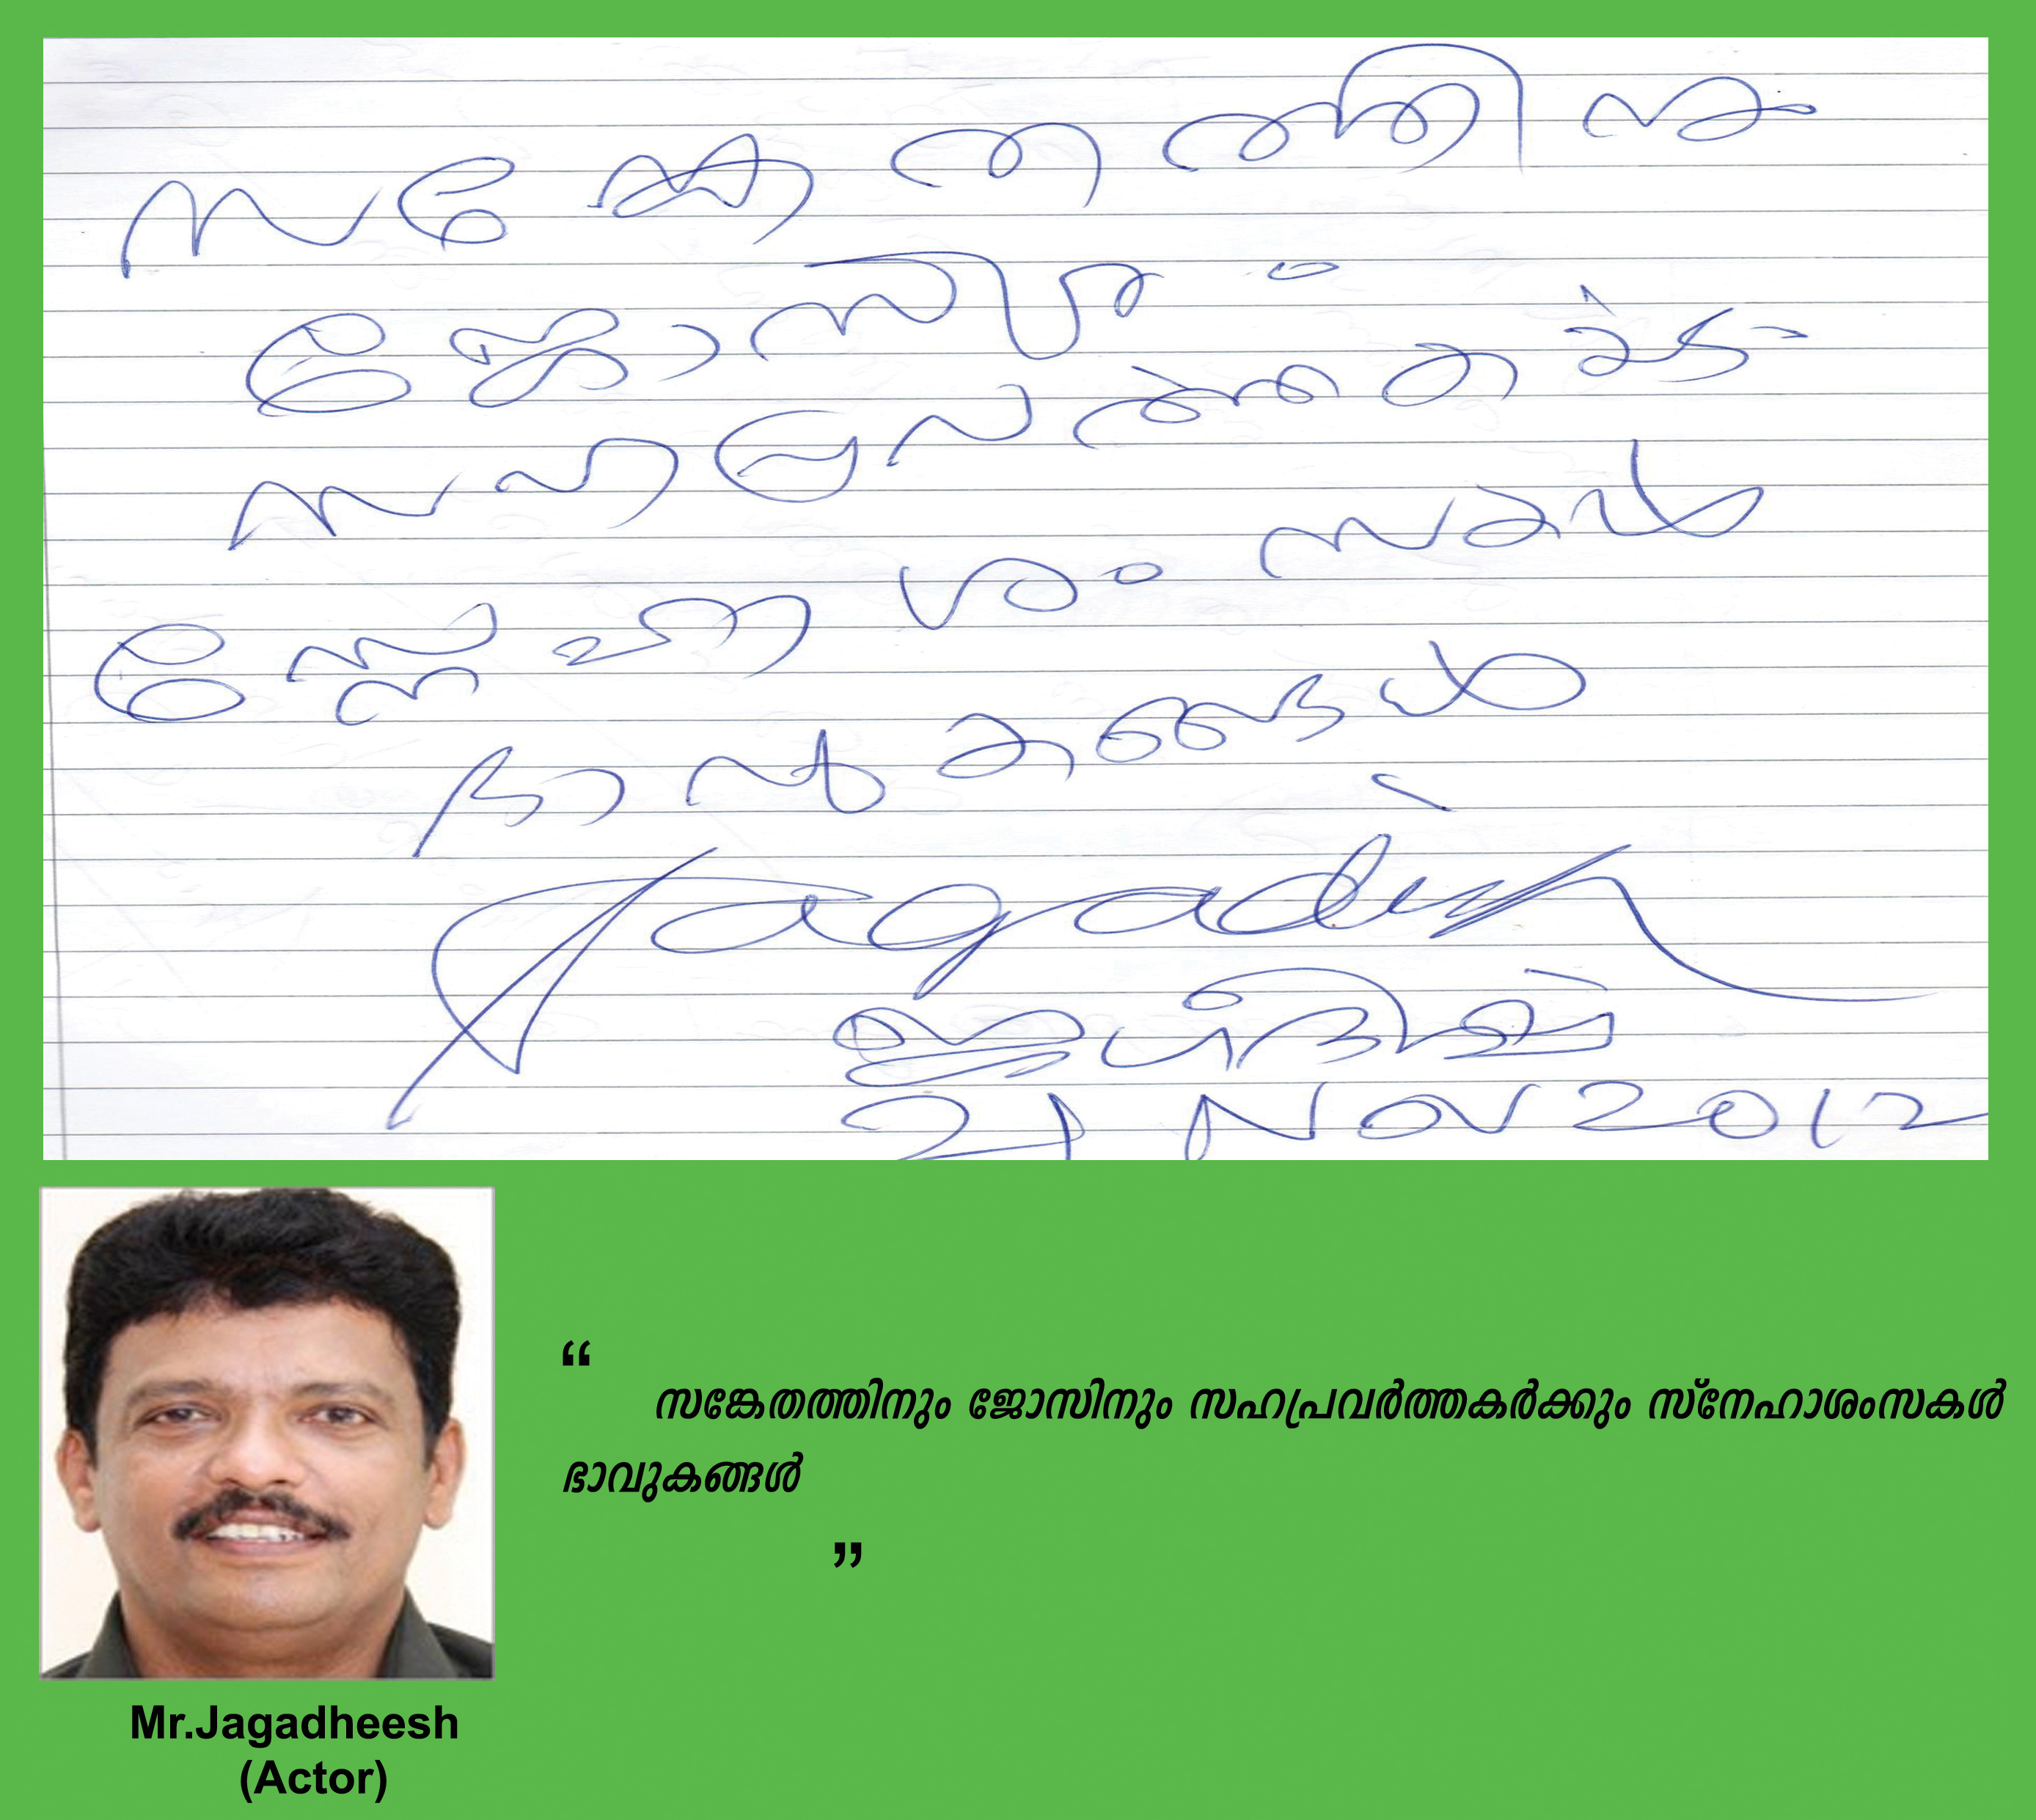 സങ്കേതത്തിനും
ജോസിനും
സഹപ്രവർത്തകർക്കും
സ്നേഹാശംസകൾ
ഭാവുകങ്ങൾ
Jagadish
ജഗദീഷ്
21 NOV 2012
“
സങ്കേതത്തിനും ജോസിനും സഹപ്രവർത്തകർക്കും സ്നേഹാശംസകൾ
ഭാവുകങ്ങൾ
”
Mr.Jagadheesh
(Actor)